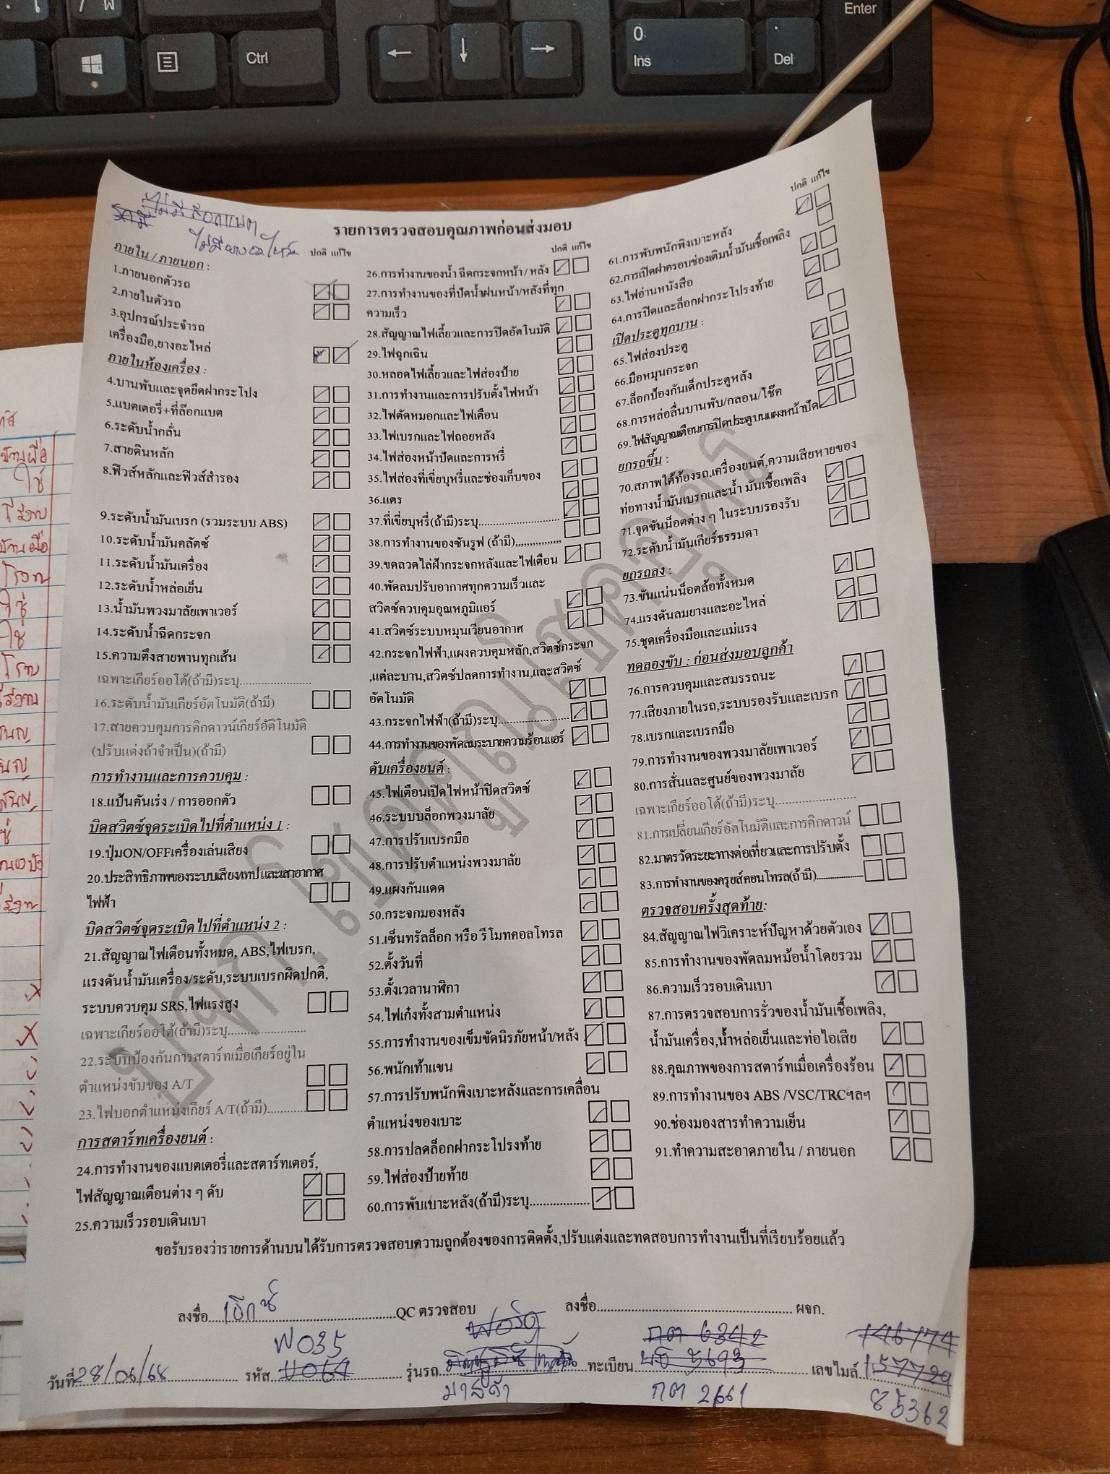 Enter
Ctrl
0
Ins
.
Del
ไม่มีล้อแมต
ไม่มียางอะไหล่
รายการตรวจสอบคุณภาพก่อนส่งมอบ
ภายใน / ภายนอก :
ปกติ แก้ไข
1.ภายนอกตัวรถ
2.ภายในตัวรถ
3.อุปกรณ์ประจำรถ
เครื่องมือ,ยางอะไหล่
ภายในห้องเครื่อง :
4.บานพับและจุดยึดฝากระโปง
5.แบตเตอรี่+ที่ล็อกแบต
6.ระดับน้ำกลั่น
7.สายดินหลัก
8.ฟิวส์หลักและฟิวส์สำรอง
9.ระดับน้ำมันเบรก (รวมระบบ ABS)
10.ระดับน้ำมันคลัตซ์
11.ระดับน้ำมันเครื่อง
12.ระดับน้ำหล่อเย็น
13.น้ำมันพวงมาลัยเพาเวอร์
14.ระดับน้ำฉีดกระจก
15.ความตึงสายพานทุกเส้น
เฉพาะเกียร์ออโต้(ถ้ามี)ระบุ
16.ระดับน้ำมันเกียร์อัตโนมัติ(ถ้ามี)
17.สายควบคุมการคิกดาวน์เกียร์อัตโนมัติ
(ปรับแต่งถ้าจำเป็น)(ถ้ามี)
การทำงานและการควบคุม :
18.แป้นคันเร่ง / การออกตัว
บิดสวิตซ์จุดระเบิดไปที่ตำแหน่ง 1 :
19.ปุ่มON/OFFเครื่องเล่นเสียง
20.ประสิทธิภาพของระบบเสียงเทปและเสาอากาศ
ไฟฟ้า
บิดสวิตซ์จุดระเบิดไปที่ตำแหน่ง 2 :
21.สัญญาณไฟเตือนทั้งหมด, ABS,ไฟเบรก,
แรงดันน้ำมันเครื่อง/ระดับ,ระบบเบรกผิดปกติ,
ระบบควบคุม SRS,ไฟแรงสูง
เฉพาะเกียร์ออโต้(ถ้ามี)ระบุ
22.ระบบป้องกันการสตาร์ทเมื่อเกียร์อยู่ใน
ตำแหน่งขับของ A/T
23.ไฟบอกตำแหน่งเกียร์ A/T(ถ้ามี)
การสตาร์ทเครื่องยนต์ :
24.การทำงานของแบตเตอรี่และสตาร์ทเตอร์,
ไฟสัญญาณเตือนต่าง ๆ ดับ
25.ความเร็วรอบเดินเบา
ปกติ แก้ไข
26.การทำงานของน้ำ ฉีดกระจกหน้า/ หลัง
27.การทำงานของที่ปัดน้ำฝนหน้า/หลังที่ทุก
ความเร็ว
28.สัญญาณไฟเลี้ยวและการปิดอัตโนมัติ
29.ไฟฉุกเฉิน
30.หลอดไฟเลี้ยวและไฟส่องป้าย
31.การทำงานและการปรับตั้งไฟหน้า
32.ไฟตัดหมอกและไฟเตือน
33.ไฟเบรกและไฟถอยหลัง
34.ไฟส่องหน้าปัดและการหรี่
35.ไฟส่องที่เขี่ยบุหรี่และช่องเก็บของ
36.แตร
37.ที่เขี่ยบุหรี่(ถ้ามี)ระบุ
38.การทำงานของซันรูฟ (ถ้ามี)
39.ขดลวดไล่ฝ้ากระจกหลังและไฟเตือน
40.พัดลมปรับอากาศทุกความเร็วและ
สวิตซ์ควบคุมอุณหภูมิแอร์
41.สวิตซ์ระบบหมุนเวียนอากาศ
42.กระจกไฟฟ้า,แผงควบคุมหลัก,สวิตซ์กระจก
,แต่ละบาน,สวิตซ์ปลดการทำงาน,และสวิตซ์
อัตโนมัติ
43.กระจกไฟฟ้า(ถ้ามี)ระบุ
44.การทำงานของพัดลมระบายความร้อนแอร์
ดับเครื่องยนต์ :
45.ไฟเตือนเปิดไฟหน้าปิดสวิตซ์
46.ระบบบล็อกพวงมาลัย
47.การปรับเบรกมือ
48.การปรับตำแหน่งพวงมาลัย
49.แผงกันแดด
50.กระจกมองหลัง
51.เซ็นทรัลล็อก หรือ รีโมทคอลโทรล
52.ตั้งวันที่
53.ตั้งเวลานาฬิกา
54.ไฟเก๋งทั้งสามตำแหน่ง
55.การทำงานของเข็มขัดนิรภัยหน้า/หลัง
56.พนักเท้าแขน
57.การปรับพนักพิงเบาะหลังและการเคลื่อน
ตำแหน่งของเบาะ
58.การปลดล็อกฝากระโปรงท้าย
59.ไฟส่องป้ายท้าย
60.การพับเบาะหลัง(ถ้ามี)ระบุ
ปกติ แก้ไข
61.การพับพนักพิงเบาะหลัง
62.การเปิดฝาครอบช่องเติมน้ำมันเชื้อเพลิง
63.ไฟอ่านหนังสือ
64.การปิดและล็อกฝากระโปรงท้าย
เปิดประตูทุกบาน :
65.ไฟส่องประตู
66.มือหมุนกระจก
67.ล็อกป้องกันเด็กประตูหลัง
68.การหล่อลื่นบานพับ/กลอน/โช๊ค
69.ไฟสัญญาณเตือนการปิดประตูบนแผงหน้าปัด
ยกรถขึ้น :
70.สภาพใต้ท้องรถ,เครื่องยนต์,ความเสียหายของ
ท่อทางน้ำมันเบรกและน้ำ มันเชื้อเพลิง
71.จุดขันน็อตต่าง ๆ ในระบบรองรับ
72.ระดับน้ำมันเกียร์ธรรมดา
ยกรถลง :
73.ขันแน่นน็อตล้อทั้งหมด
74.แรงดันลมยางและอะไหล่
75.ชุดเครื่องมือและแม่แรง
ทดลองขับ : ก่อนส่งมอบลูกค้า
76.การควบคุมและสมรรถนะ
77.เสียงภายในรถ,ระบบรองรับและเบรก
78.เบรกและเบรกมือ
79.การทำงานของพวงมาลัยเพาเวอร์
80.การสั่นและศูนย์ของพวงมาลัย
เฉพาะเกียร์ออโต้(ถ้ามี)ระบุ
81.การเปลี่ยนเกียร์อัตโนมัติและการคิกดาวน์
82.มาตรวัดระยะทางต่อเที่ยวและการปรับตั้ง
83.การทำงานของครุยส์คอนโทรล(ถ้ามี)
ตรวจสอบครั้งสุดท้าย:
84.สัญญาณไฟวิเคราะห์ปัญหาด้วยตัวเอง
85.การทำงานของพัดลมหม้อน้ำโดยรวม
86.ความเร็วรอบเดินเบา
87.การตรวจสอบการรั่วของน้ำมันเชื้อเพลิง,
น้ำมันเครื่อง,น้ำหล่อเย็นและท่อไอเสีย
88.คุณภาพของการสตาร์ทเมื่อเครื่องร้อน
89.การทำงานของ ABS /VSC/TRCฯลฯ
90.ช่องมองสารทำความเย็น
91.ทำความสะอาดภายใน / ภายนอก
ขอรับรองว่ารายการด้านบนได้รับการตรวจสอบความถูกต้องของการติดตั้ง,ปรับแต่งและทดสอบการทำงานเป็นที่เรียบร้อยแล้ว
ลงชื่อ เอ็กซ์ QC ตรวจสอบ
ลงชื่อ ผจก.
ฟ035 ฟอร์ด กต 6342 146774
วันที่ 28/06/68 รหัส รุ่นรถ ทะเบียน 5693 เลขไมล์ 157729
มาสด้า กต 2661 85362